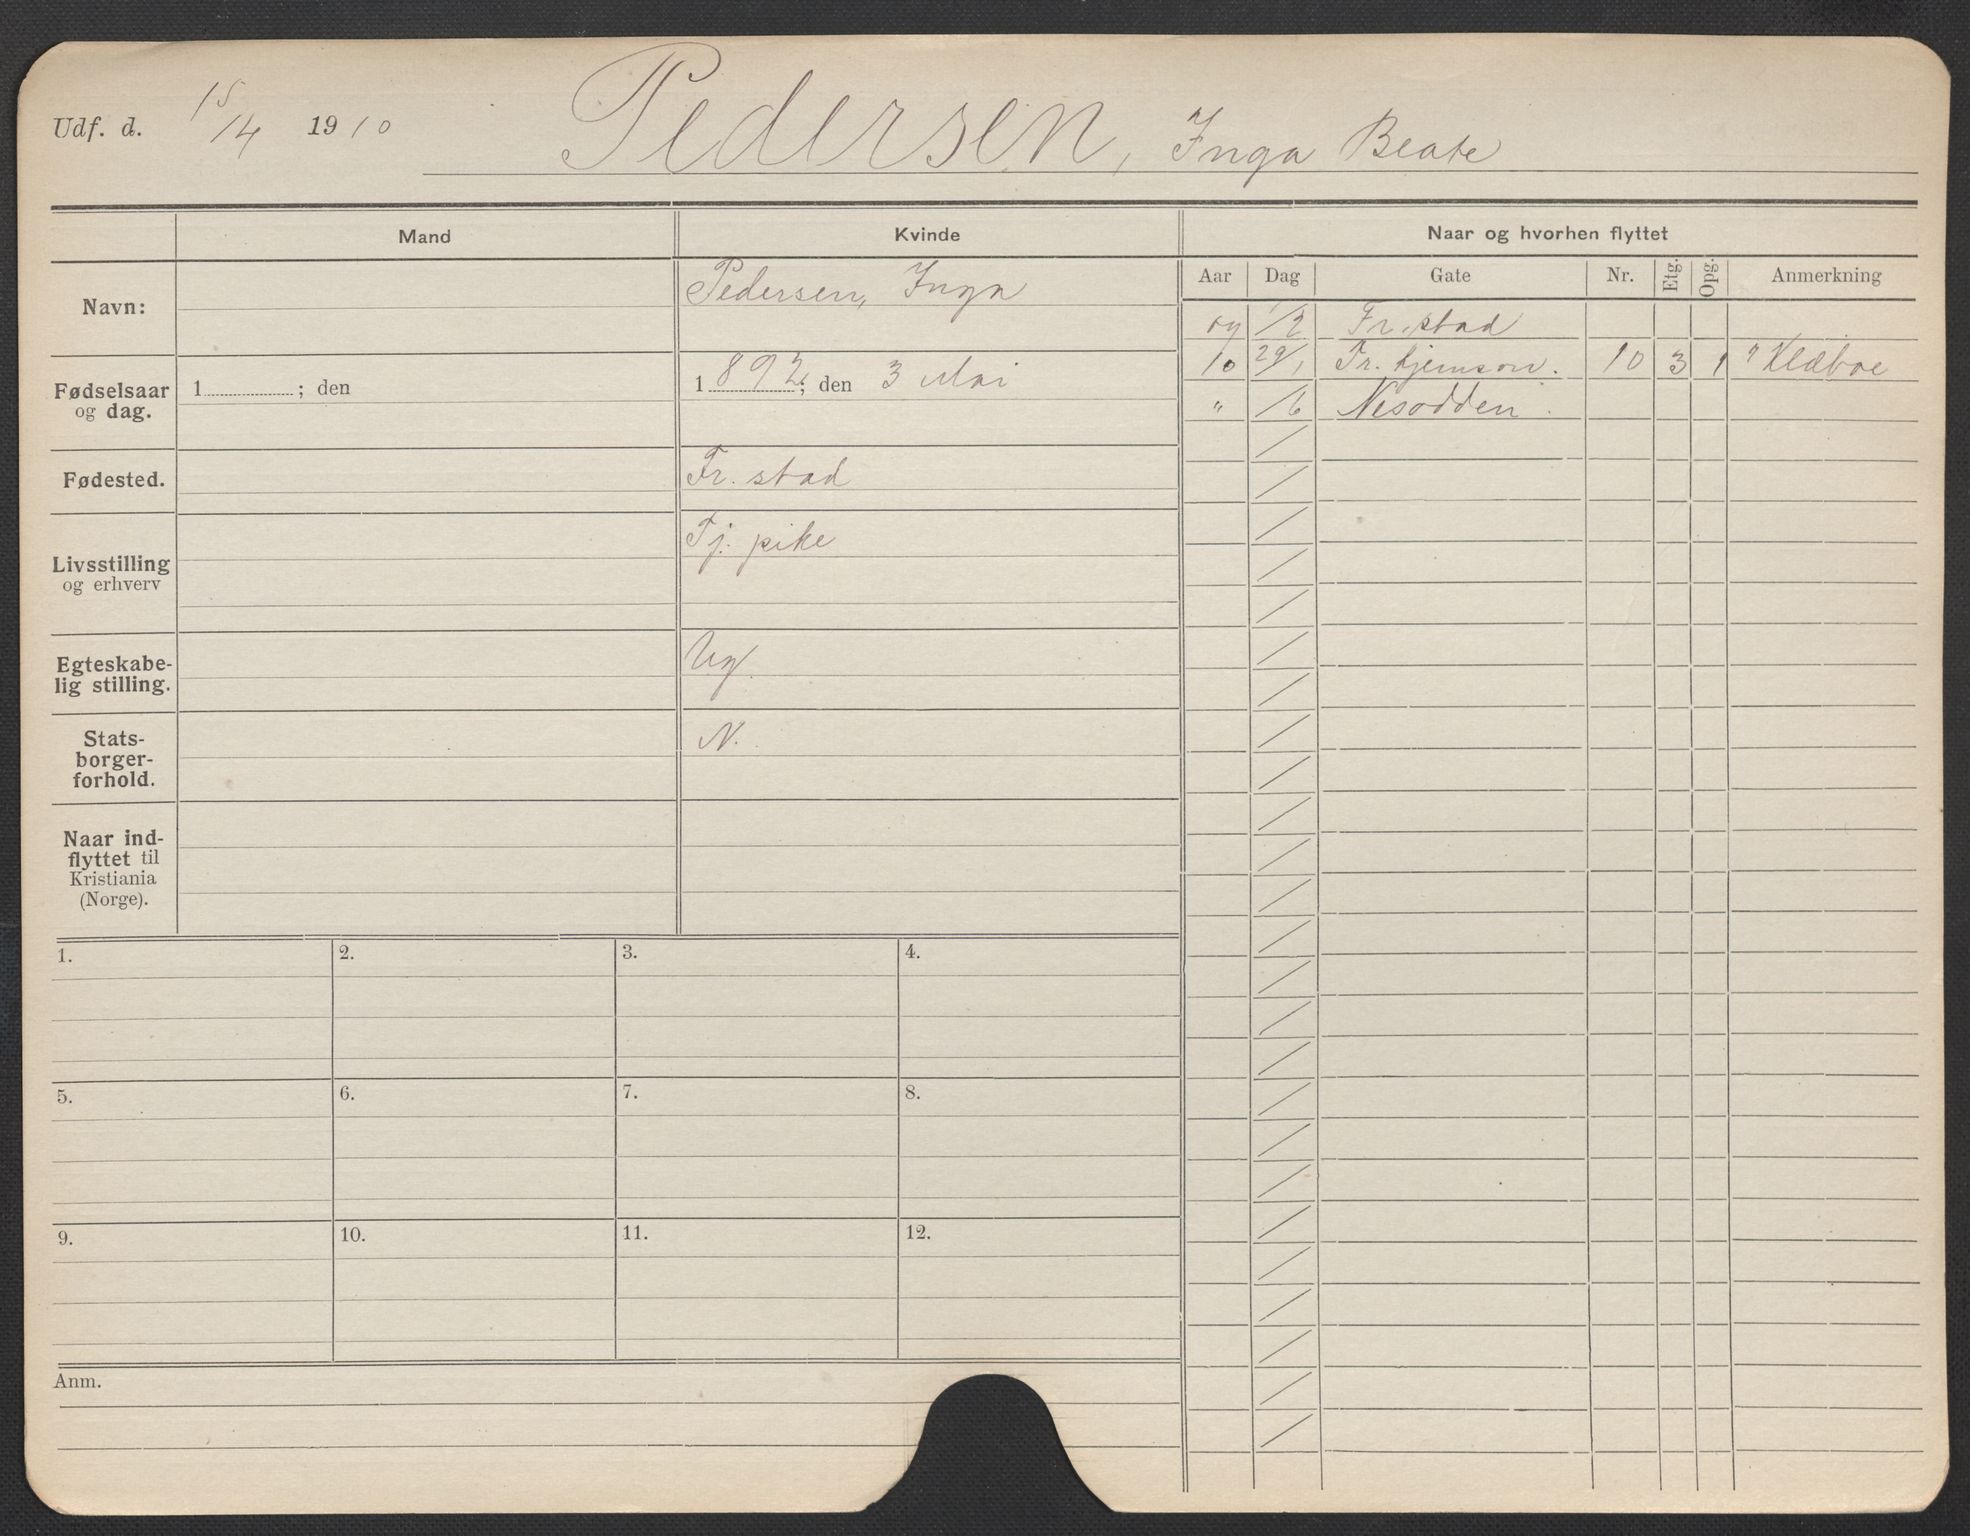 Udf. d. 15/4 1910 Pedersen, Inga Beate
Mand Kvinde Naar og hvorhen flyttet
Aar Dag Gate Nr. Etg. Opg. Anmerkning
Navn: Pedersen, Inga
Fødselsaar og dag. 1 ; den 1892; den 3 Mai
Fødested. Fr. stad
Livsstilling og erhverv Tj. pike
Egteskabe-
lig stilling. Ug.
Stats-
borger-
forhold. N.
Naar ind-
flyttet til
Kristiania
(Norge).
09 1/2 Fr. stad
10 29/1 Fr. hjemson. 10 3 1 " Klæboe
" 1/6 Nesodden.
1. 2. 3. 4.
5. 6. 7. 8.
9. 10. 11. 12.
Anm.